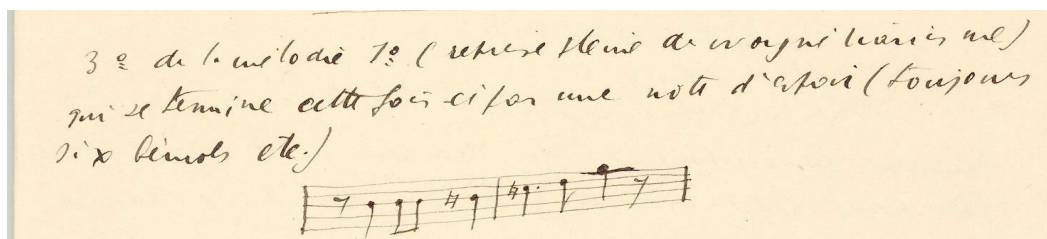 3º de la mélodie 1º (reprise pleine de wagnérianisme)
qui se termine cette fois ci par une note d'espoir (toujours
six bémols etc.)